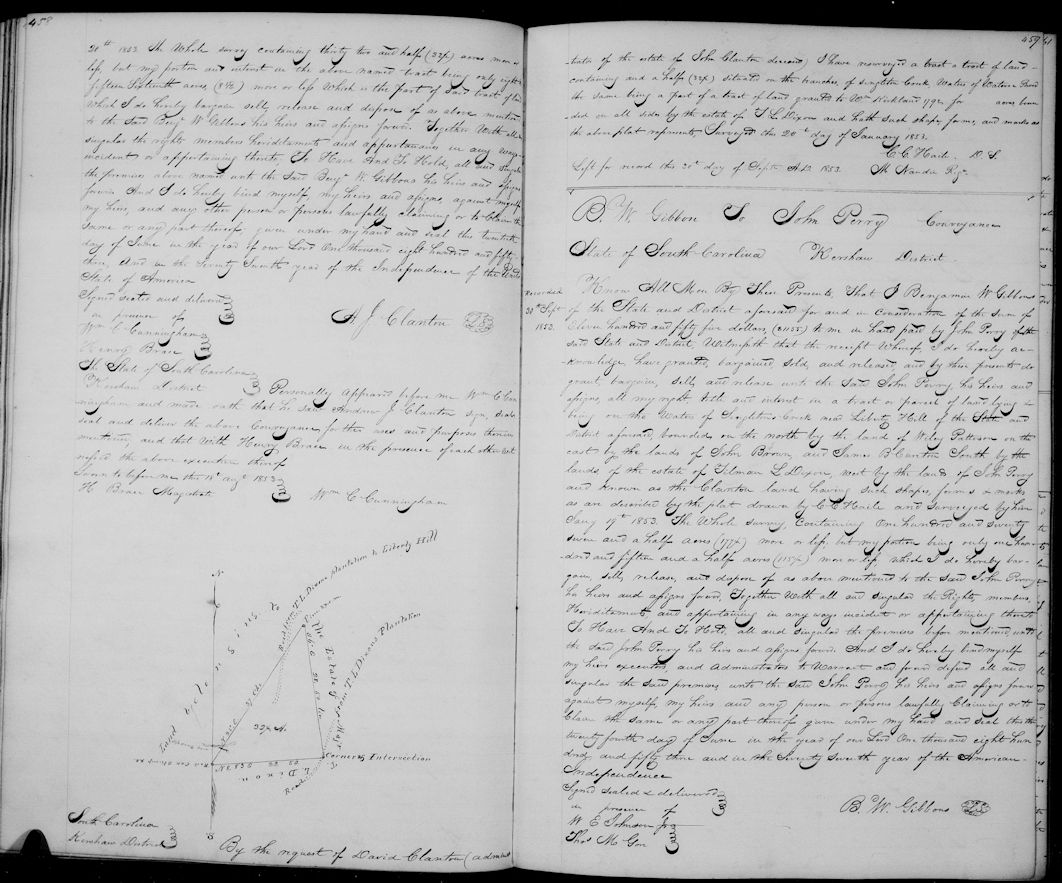 458
20th 1853 The Whole survey containing thirty two and half (32½) acres more or
less, but my portion and interest in the above named tract being only eight &
fifteen Sixteenth acres, more or less Which is the part of said tract of land
What I do hereby bargain sell, release and dispose of as above mention
to the said Benj W Gibbons his heirs and assigns forever. Together With all &
singular the rights members hereditaments and appurtenances in any ways
incident or appertaining thereto, To Have And To Hold, all and Singular
the premises above named unto the said Benj W. Gibbons his heirs and assigns
forever And I do hereby bind myself, my heirs and assigns, against myself
my heirs, and any other person or persons lawfully claiming or to Claim the
same or any part thereof, given under my hand and seal this twentieth
day of June in the year of our Lord One thousand eight hundred and fifty
three, And in the Seventy Seventh year of the Independence of the United
State of America
Signed sealed and delivered
in presence of
Wm C Cunningham
Henry Brace
A. J. Clanton LS
The State of South Carolina
Kershaw District
Personally Appeared before me Wm C Cun
ningham and made oath that he saw Andrew J. Clanton sign, seal
seal and deliver the above Conveyance for the uses and purposes therein
mentioned, and that With Henry Brace in the presence of each other wit
nessed the above execution thereof
Sworn to before me this 1st augt 1853
H Brace Magistrate
Wm C Cunningham
Plantation & Liberty Hill
T. L. Dixon
The Estate of
T. L. Dixons Plantation
32½ A.
Corner by Intersection
T. L Dixon
Road
Land
South Carolina
Kershaw District
By the request of David Clanton (adminis
459
trator of the estate of John Clanton deceased) I have resurveyed a tract a tract of land
containing and a half (32½) situated on the branches of Singleton Creek, Waters of Wateree River
the same being a part of a tract of land granted to Wm Kirkland 1792 for acres boun
ded on all sides by the estate of T L Dixon and hath such shape, form, and marks as
the above plat represents Surveyed this 20th day of January 1853.
C. C. Haile. D. S.
Left for record this 30th day of Septr A.D. 1853
B. W. Gibbon To John Perry Conveyance
State of South Carolina Kershaw District
Recorded
30th Sept
1853.
Know All Men By These Presents, That I Benjamin W Gibbons
of the State and District aforesaid for and in Consideration of the sum of
Eleven hundred and fifty five dollars, ($1155) to me in hand paid by John Perry of the
said State and District, Witnesseth that the receipt Whereof, I do hereby ac-
knowledge, have granted, bargained, sold, and released and by these presents do
grant, bargain, sell, and release unto the said John Perry, his heirs and
assigns, all my right, title and interest in a tract or parcel of land lying &
being on the Waters of Singleton Creek near Liberty Hill of the State and
District aforesaid, bounded on the north by the land of Wiley Patterson on the
east by the lands of John Brown, and James B Canton South by the
lands, of the estate of Tilman L Dixon, west by the lands of John Perry
and known as the Clanton land having such shapes, forms & marks
as are described by the plat drawn by C. C Haile and surveyed by him
Jany 19th 1853. The Whole survey, Containing One hundred and seventy
seven and a half acres (177½) more or less, but my portion being only one hun-
dred and fifteen and a half acres (115½) more or less, which I do hereby bar-
gain, sell, release, and dispose of as above mentioned to the said John Perry
his heirs and assigns forever, Together With all and singular the Rights, members,
Hereditaments and appertaining in any ways incident or appertaining thereto
To Have And To Hold, all and singular the premises before mentioned unto
the said John Perry his heirs and assigns forever And I do hereby bind myself
my heirs executors, and Administrators to Warrant and forever defend all and
singular the said premises unto the said John Perry his heirs and assigns forever
against myself, my heirs and any person or persons lawfully Claiming or to
Claim the same or any part thereof given under my hand and seal this the
twenty fourth day of June in the year of our Lord One thousand eight hun
dred, and fifty three and in the Seventy Seventh year of the American
Independence
Signed sealed & delivered
in presence of
W E Johnson Jr
Thos M Gon
B. W. Gibbons LS